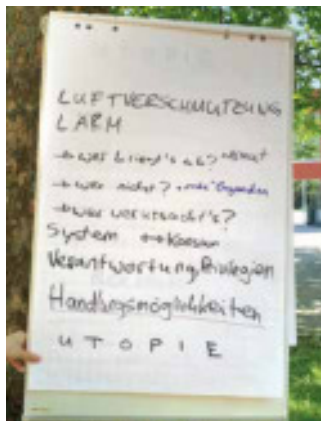 LUFTVERSCHMUTZUNG
LÄRM
→ wer kriegt's ab?
→ wer nicht?
→ wer verursacht's?
System ↔ Konsum
Verantwortung, Privilegien
Handlungsmöglichkeiten
UTOPIE